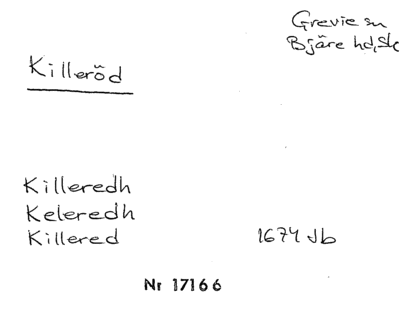 Grevie sn
Bjäre hd, Sk
Killeröd
Killeredh
Keleredh
Killered 1674 Jb
Nr 17166